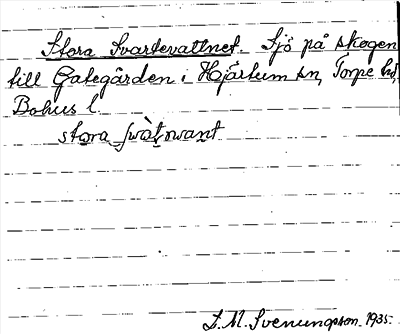 Stora Svartevattnet. Sjö på skogen
till Gategården i Hjärtum sn, Torpe hd,
Bohus l.
stora
S. M. Svenungsson. 1935.